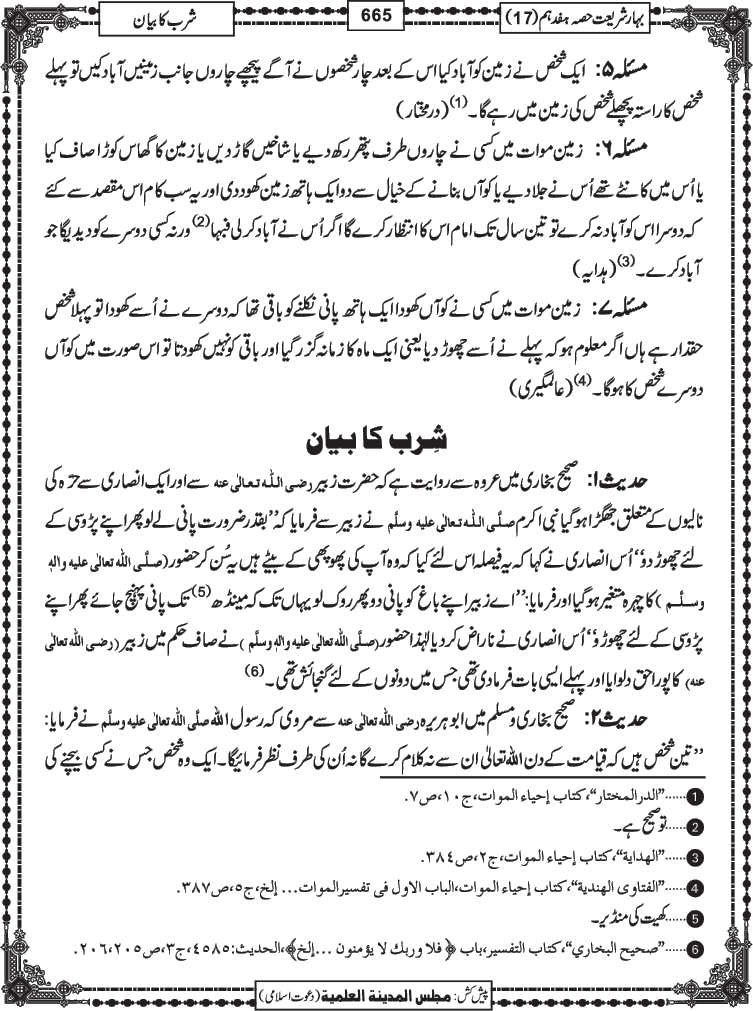 بہار شریعت حصہ ہفدہم (17)
665
شرب کا بیان
مسئلہ ۵: ایک شخص نے زمین کو آباد کیا اس کے بعد چار شخصوں نے آگے پیچھے چاروں جانب زمینیں آباد کیں تو پہلے
شخص کا راستہ پچھلے شخص کی زمین میں رہے گا۔(1) (درمختار)
مسئلہ ۶: زمین موات میں کسی نے چاروں طرف پتھر رکھ دیے یا شاخیں گاڑ دیں یا زمین کا گھاس کوڑا صاف کیا
یا اُس میں کانٹے تھے اُس نے جلا دیے یا کوآں بنانے کے خیال سے دو ایک ہاتھ زمین کھود دی اور یہ سب کام اس مقصد سے کئے
کہ دوسرا اس کو آباد نہ کرے تو تین سال تک امام اس کا انتظار کرے گا اگر اُس نے آباد کر لی فبہا(2) ورنہ کسی دوسرے کو دیدیگا جو
آباد کرے۔(3) (ہدایہ)
مسئلہ ۷: زمین موات میں کسی نے کوآں کھودا ایک ہاتھ پانی نکلنے کو باقی تھا کہ دوسرے نے اُسے کھودا تو پہلا شخص
حقدار ہے ہاں اگر معلوم ہو کہ پہلے نے اُسے چھوڑ دیا یعنی ایک ماہ کا زمانہ گزر گیا اور باقی کو نہیں کھودتا تو اس صورت میں کوآں
دوسرے شخص کا ہوگا۔(4) (عالمگیری)
شِرب کا بیان
حدیث ۱: صحیح بخاری میں عروہ سے روایت ہے کہ حضرت زبیر رضی اللہ تعالیٰ عنہ سے اور ایک انصاری سے حرّہ کی
نالیوں کے متعلق جھگڑا ہوگیا نبی اکرم صلَّی اللہ تعالیٰ علیہ وسلَّم نے زبیر سے فرمایا کہ ’’بقدر ضرورت پانی لے لو پھر اپنے پڑوسی کے
لئے چھوڑ دو‘‘ اُس انصاری نے کہا کہ یہ فیصلہ اس لئے کیا کہ وہ آپ کی پھوپھی کے بیٹے ہیں یہ سُن کر حضور (صلَّی اللہ تعالیٰ علیہ والہٖ
وسلَّم) کا چہرہ متغیر ہوگیا اور فرمایا: ’’اے زبیر اپنے باغ کو پانی دو پھر روک لو یہاں تک کہ مینڈھ(5) تک پانی پہنچ جائے پھر اپنے
پڑوسی کے لئے چھوڑ دو‘‘ اُس انصاری نے ناراض کر دیا لہٰذا حضور (صلَّی اللہ تعالیٰ علیہ والہٖ وسلَّم) نے صاف حکم میں زبیر (رضی اللہ تعالیٰ
عنہ) کا پورا حق دلوایا اور پہلے ایسی بات فرمادی تھی جس میں دونوں کے لئے گنجائش تھی۔(6)
حدیث ۲: صحیح بخاری و مسلم میں ابوہریرہ رضی اللہ تعالیٰ عنہ سے مروی کہ رسول اللہ صلَّی اللہ تعالیٰ علیہ وسلَّم نے فرمایا:
’’تین شخص ہیں کہ قیامت کے دن اللہ تعالیٰ ان سے نہ کلام کرے گا نہ اُن کی طرف نظر فرمائیگا۔ ایک وہ شخص جس نے کسی بیچنے کی
1......’’الدرالمختار‘‘، کتاب إحیاء الموات، ج۱۰، ص۷.
2......تو صحیح ہے۔
3......’’الھدایة‘‘، کتاب إحیاء الموات، ج۲، ص۳۸۴.
4......’’الفتاوی الھندیة‘‘، کتاب إحیاء الموات، الباب الاول فی تفسیرالموات... إلخ، ج۵، ص۳۸۷.
5......کھیت کی منڈیر۔
6......’’صحیح البخاري‘‘، کتاب التفسیر، باب ﴿فلا وربك لا یؤمنون ...إلخ﴾، الحدیث:۴۵۸۵، ج۳، ص۲۰۵،۲۰۶.
پیش کش: مجلس المدینة العلمیة (دعوت اسلامی)